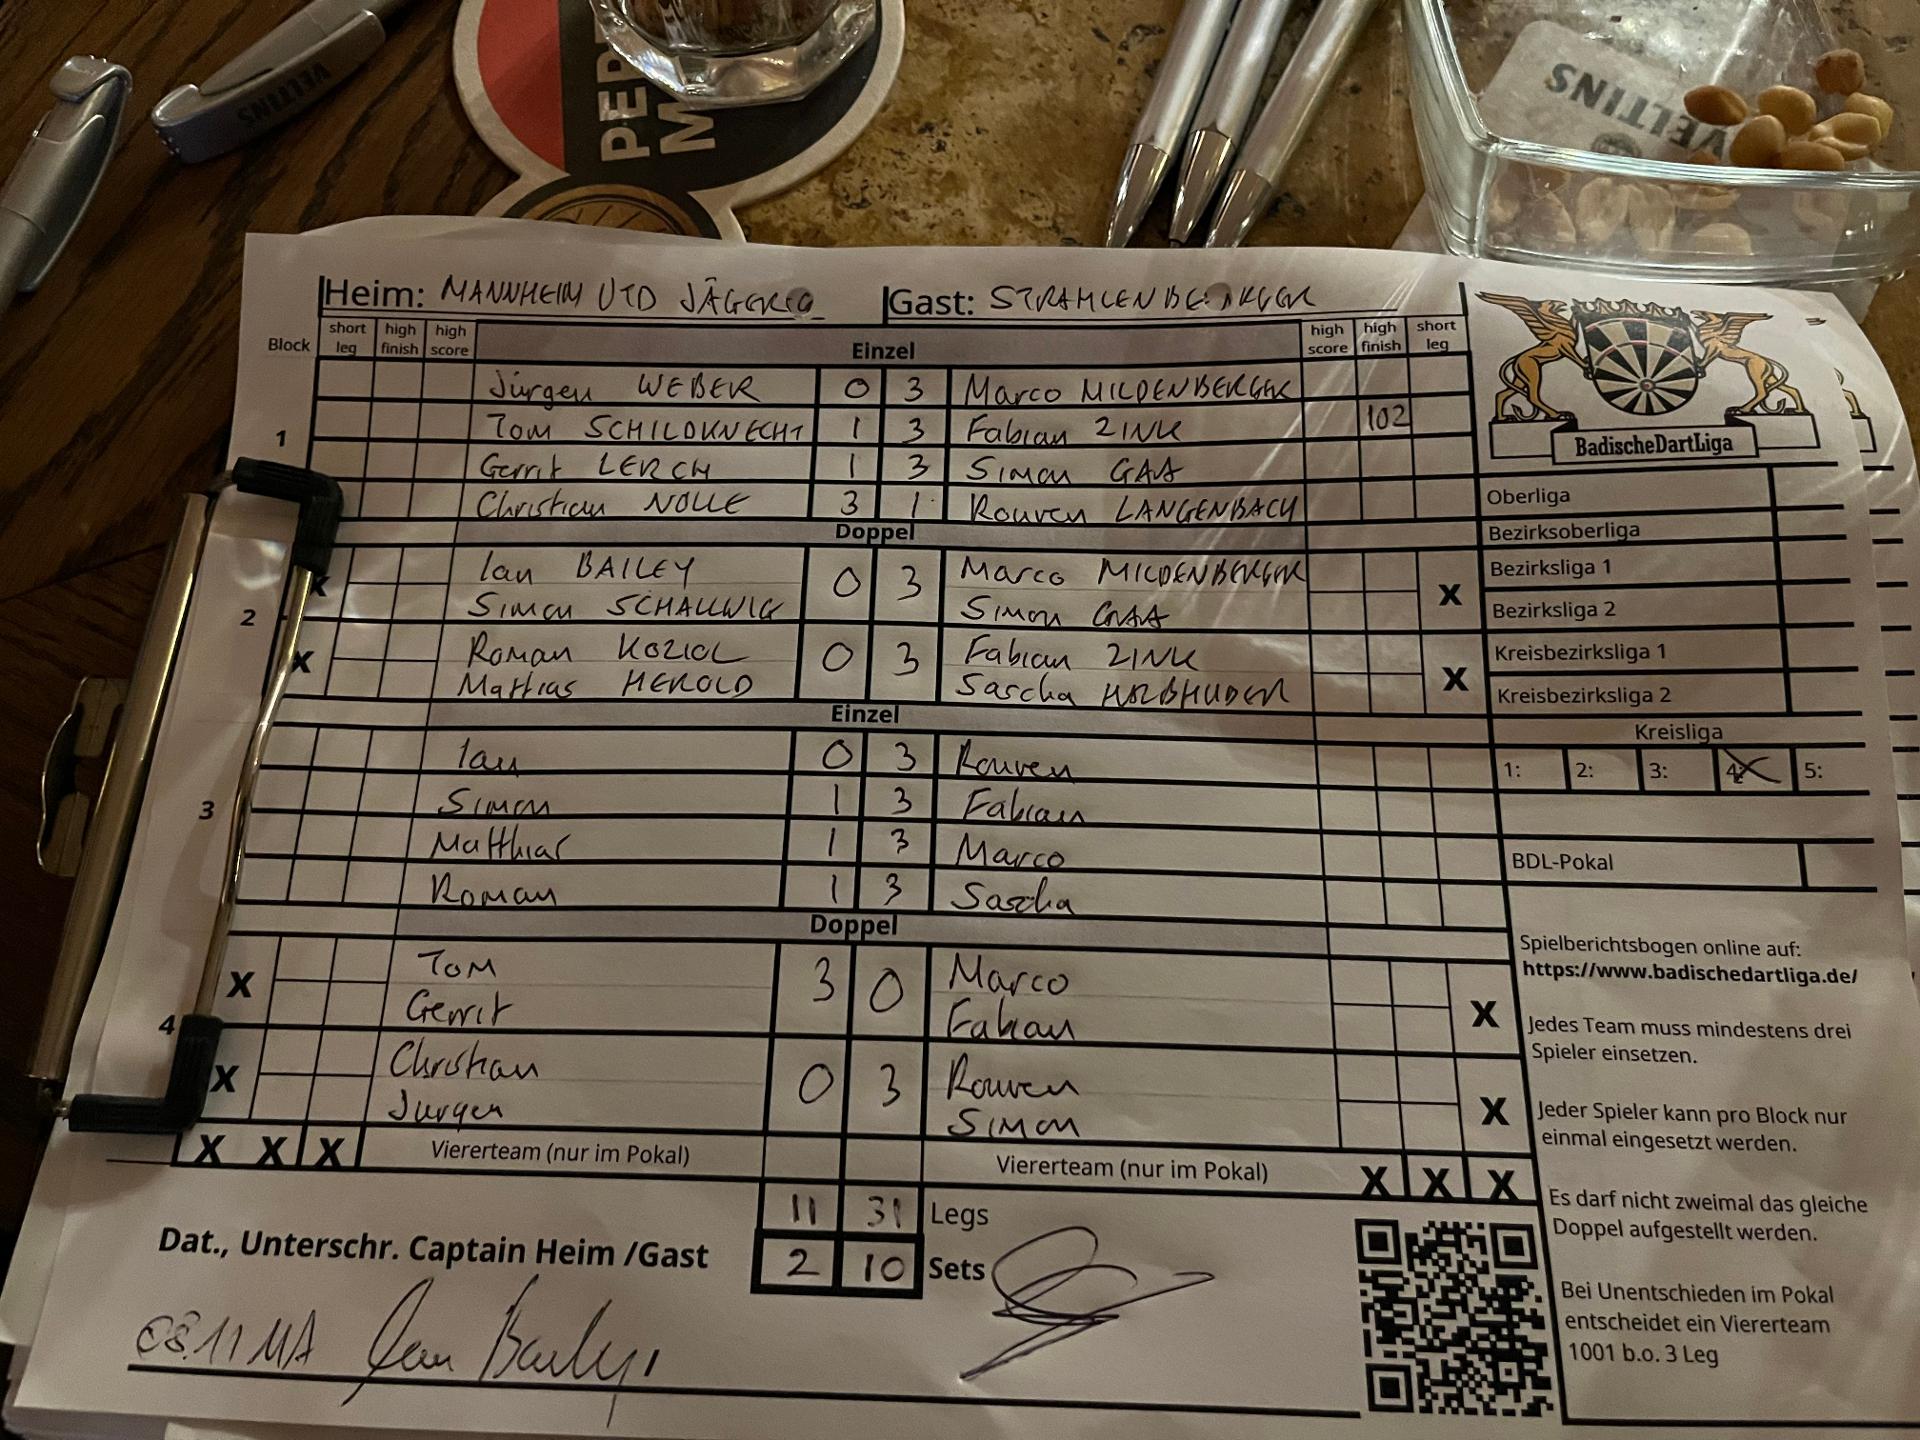 VELTINS
VELTINS
Heim: MANNHEIM UTD JÄGER
Gast:
Block
short leg
high finish
high score
Einzel
high score
high finish
short leg
1
Jürgen WEBER 0 3 Marco MILDENBERGER
Tom SCHILDKNECHT 1 3 Fabian ZINK 102
Gerrit LERCH 1 3 Simon GAA
Christian NOLLE 3 1 Rouven LANGENBACH
Doppel
2
Ian BAILEY 0 3 Marco MILDENBERGER X
Simon SCHALLWIG Simon GAA
X Roman KOZIOL 0 3 Fabian ZINK X
Mattias HEROLD Sascha
Einzel
3
Ian 0 3 Rouven
Simon 1 3 Fabian
Matthias 1 3 Marco
Roman 1 3 Sascha
Doppel
4
X Tom 3 0 Marco X
Gerrit Fabian
X Christian 0 3 Rouven X
Jürgen Simon
X X X Viererteam (nur im Pokal) Viererteam (nur im Pokal) X X X
11 31 Legs
2 10 Sets
Dat., Unterschr. Captain Heim /Gast
08.11 MA Ian Bailey
BadischeDartLiga
Oberliga
Bezirksoberliga
Bezirksliga 1
Bezirksliga 2
Kreisbezirksliga 1
Kreisbezirksliga 2
Kreisliga
1: 2: 3: 4: 5:
BDL-Pokal
Spielberichtsbogen online auf:
https://www.badischedartliga.de/
Jedes Team muss mindestens drei
Spieler einsetzen.
Jeder Spieler kann pro Block nur
einmal eingesetzt werden.
Es darf nicht zweimal das gleiche
Doppel aufgestellt werden.
Bei Unentschieden im Pokal
entscheidet ein Viererteam
1001 b.o. 3 Leg